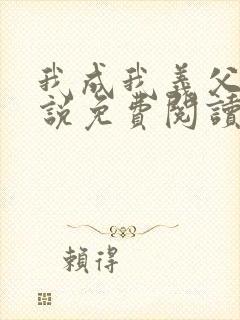 我成我義父
說免費閱讀
賴得